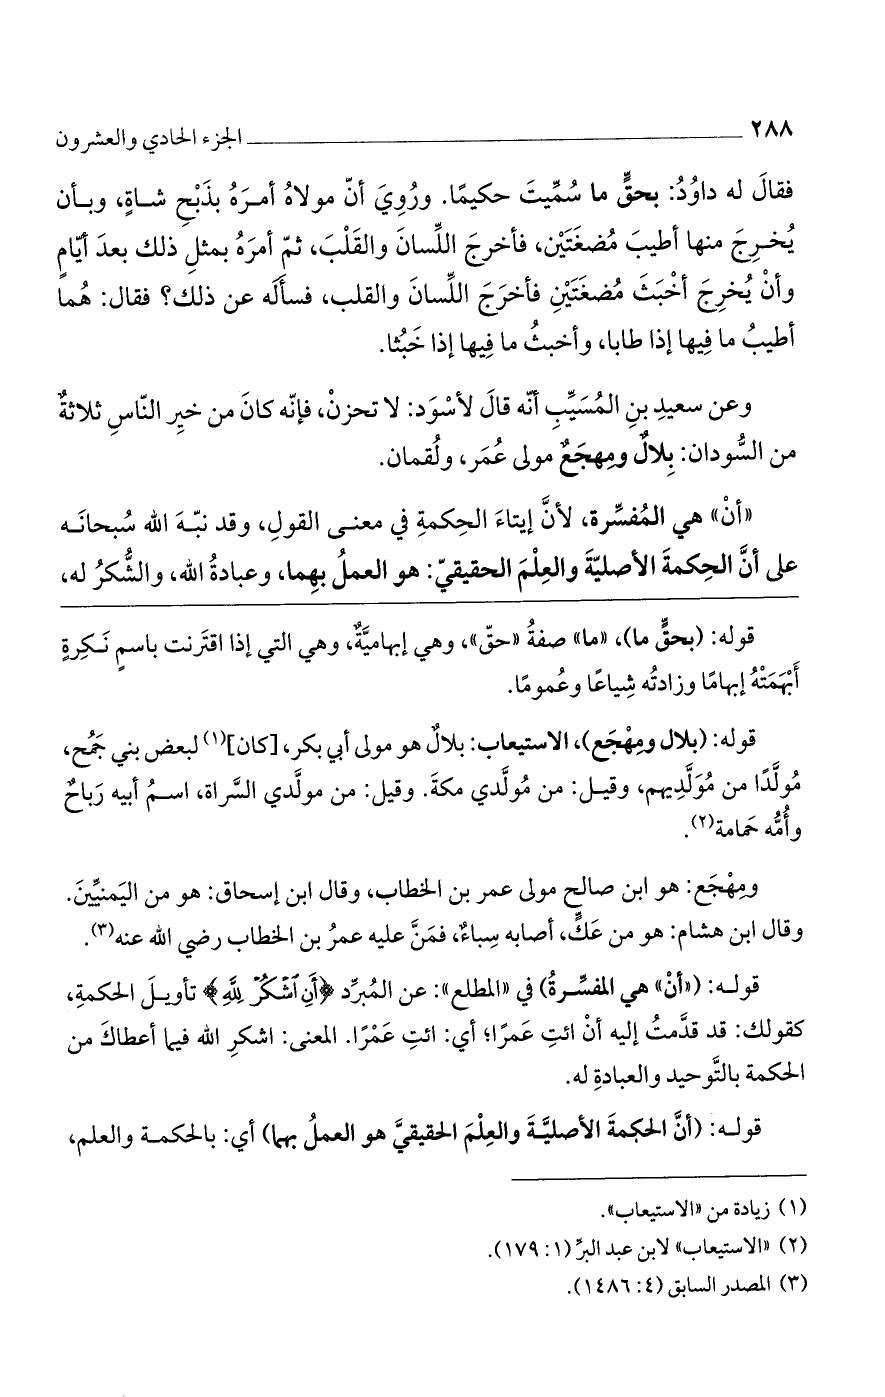 ٢٨٨ ــــــــــ الجزء الحادي والعشرون
فقالَ له داودُ: بحقٍّ ما سُمِّيتَ حكيمًا. ورُوِيَ أنّ مولاهُ أمـرَهُ بذَبْحِ شـاةٍ، وبـأن
يُخـرِجَ منها أطيبَ مُضغَتَيْن، فأخرجَ اللِّسانَ والقَلْبَ، ثمّ أمرَهُ بمثلِ ذلك بعدَ أيّامٍ
وأنْ يُخرِجَ أخْبَثَ مُضغَتَيْنِ فأخرَجَ اللِّسانَ والقلب، فسأَلَه عن ذلك؟ فقال: هُما
أطيبُ ما فِيها إذا طابا، وأخبثُ ما فِيها إذا خَبُثا.
وعن سعيدِ بنِ المُسَيِّبِ أنّه قالَ لأسْوَد: لا تحزنْ، فإنّه كانَ من خيِر النّاسِ ثلاثةٌ
من السُّودان: بِلالٌ ومِهجَعٌ مولى عُمَر، ولُقمان.
«أنْ» هي المُفسِّرة، لأنَّ إيتاءَ الحِكمةِ في معنـى القولِ، وقد نبّـهَ الله سُبحانَـه
على أنَّ الحِكمةَ الأصليّةَ والعِلْمَ الحقيقيّ: هو العملُ بِهِما، وعبادةُ الله، والشُّكرُ له،
قوله: (بحقٍّ ما)، «ما» صفةُ «حقّ»، وهي إبهاميَّةٌ، وهي التي إذا اقتَرنت باسمٍ نَـكِرةٍ
أَبْهَمَتْهُ إبهامًا وزادتُه شِياعًا وعُمومًا.
قوله: (بلال ومِهْجَع)، الاستيعاب: بلالٌ هو مولى أبي بكر، [كان](١) لبعض بني جَمُح،
مُولَّدًا من مُوَلَّدِيهم، وقيـل: من مُولَّدي مكةَ. وقيل: من مولَّدي السَّراة، اسـمُ أبيه رَباحٌ
وأُمُّه حَمامة(٢).
ومِهْجَع: هو ابن صالح مولى عمر بن الخطاب، وقال ابن إسحاق: هو من اليَمنيِّينَ.
وقال ابن هشام: هو من عَكٍّ، أصابه سِباءٌ، فمَنَّ عليه عمرُ بن الخطاب رضي الله عنه(٣).
قولـه: («أنْ» هي المفسِّـرةُ) في «المطلع»: عن المُبرِّد ﴿أَنِ ٱشْكُرْ لِلَّهِ﴾ تأويـلَ الحكمةِ،
كقولك: قد قدَّمتُ إليه أنْ ائتِ عَمرًا؛ أي: ائتِ عَمْرًا. المعنى: اشكرِ الله فيما أعطاكَ من
الحكمة بالتَّوحيد والعبادةِ له.
قولـه: (أنَّ الحكِمةَ الأصليَّـةَ والعِلْمَ الحقيقيَّ هو العملُ بهما) أي: بالحكمـة والعلم،
(١) زيادة من «الاستيعاب».
(٢) «الاستيعاب» لابن عبد البرِّ (١: ١٧٩).
(٣) المصدر السابق (٤: ١٤٨٦).